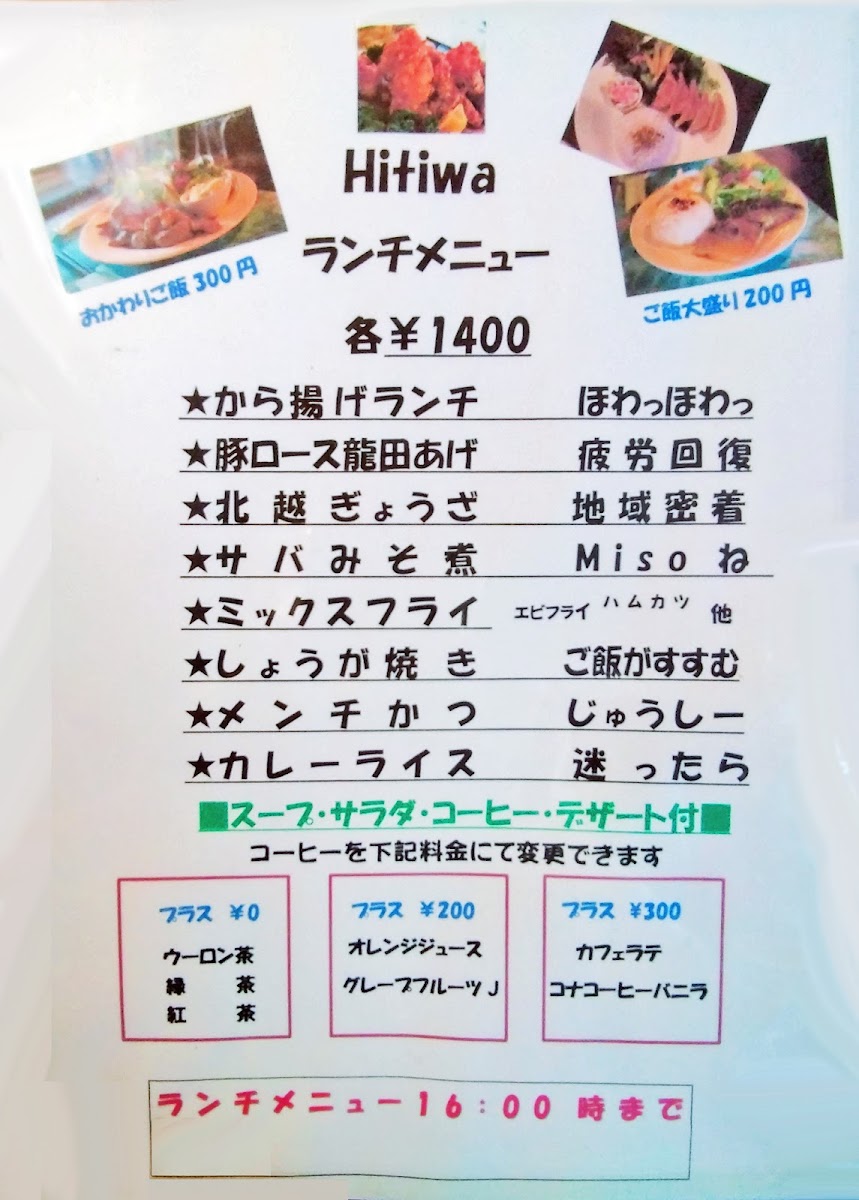 Hitiwa
おかわりご飯 300 円
ご飯大盛り 200 円
ランチメニュー
各￥1400
★から揚げランチ ほわっほわっ
★豚ロース龍田あげ 疲労回復
★北越ぎょうざ 地域密着
★サバみそ煮 Misoね
★ミックスフライ エビフライ ハムカツ 他
★しょうが焼き ご飯がすすむ
★メンチかつ じゅうしー
★カレーライス 迷ったら
■スープ・サラダ・コーヒー・デザート付■
コーヒーを下記料金にて変更できます
プラス ￥0
ウーロン茶
緑 茶
紅 茶
プラス ￥200
オレンジジュース
グレープフルーツJ
プラス ￥300
カフェラテ
コナコーヒーバニラ
ランチメニュー16：00 時まで